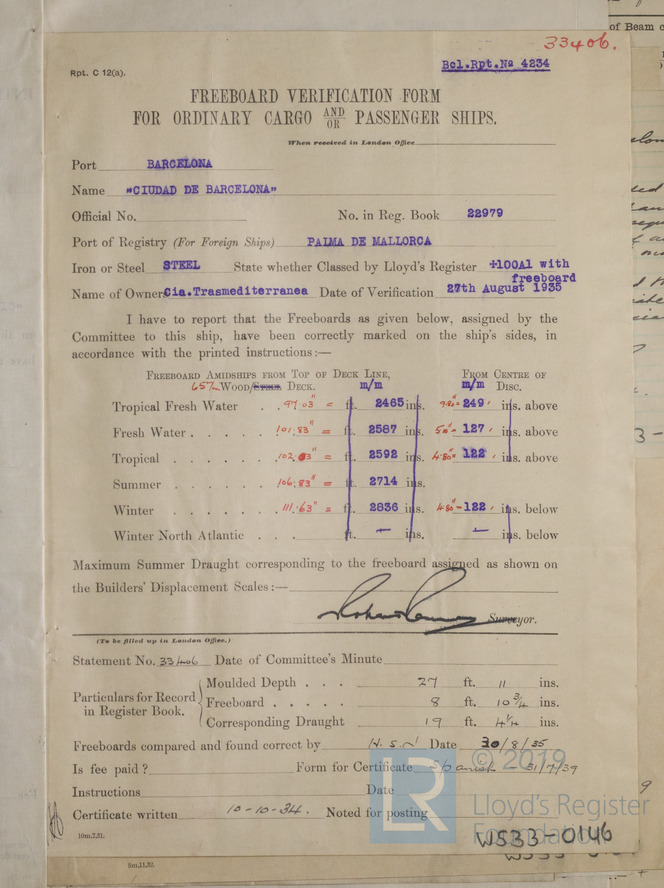 of Beam
33406.
Rpt. C 12(a).
Bcl.Rpt.Nº 4234
FREEBOARD VERIFICATION FORM
FOR ORDINARY CARGO AND/OR PASSENGER SHIPS.
When received in London Office
Port BARCELONA
Name "CIUDAD DE BARCELONA"
Official No. No. in Reg. Book 22979
Port of Registry (For Foreign Ships) PALMA DE MALLORCA
Iron or Steel STEEL State whether Classed by Lloyd's Register +100A1 with freeboard
Name of Owners Cia.Trasmediterranea Date of Verification 27th August 1935
I have to report that the Freeboards as given below, assigned by the
Committee to this ship, have been correctly marked on the ship's sides, in
accordance with the printed instructions:—
FREEBOARD AMIDSHIPS FROM TOP OF DECK LINE, FROM CENTRE OF
WOOD/STEEL DECK. m/m m/m DISC.
Tropical Fresh Water . . 97.03" = ft. 2465 ins. 9.80" = 249 ins. above
Fresh Water . . . . . 101.83" = ft. 2587 ins. 5.0" = 127 ins. above
Tropical . . . . . . 102.03" = ft. 2592 ins. 4.80" = 122 ins. above
Summer . . . . . . 106.83" = ft. 2714 ins.
Winter . . . . . . 111.63" = ft. 2836 ins. 4.80" = 122 ins. below
Winter North Atlantic . . . ft. — ins. — ins. below
Maximum Summer Draught corresponding to the freeboard assigned as shown on
the Builders' Displacement Scales:—
Surveyor.
(To be filled up in London Office.)
Statement No. 33406 Date of Committee's Minute
Particulars for Record in Register Book.
Moulded Depth . . . 27 ft. 11 ins.
Freeboard . . . . . 8 ft. 10 3/4 ins.
Corresponding Draught 19 ft. 4 1/4 ins.
Freeboards compared and found correct by H.S.N Date 30/8/35
Is fee paid? Form for Certificate Spanish 31/7/39
Instructions Date
Certificate written 10-10-34. Noted for posting
10m,7,31.
5m,11,32.
© 2019
LR
Lloyd's Register
Foundation
W533-0146